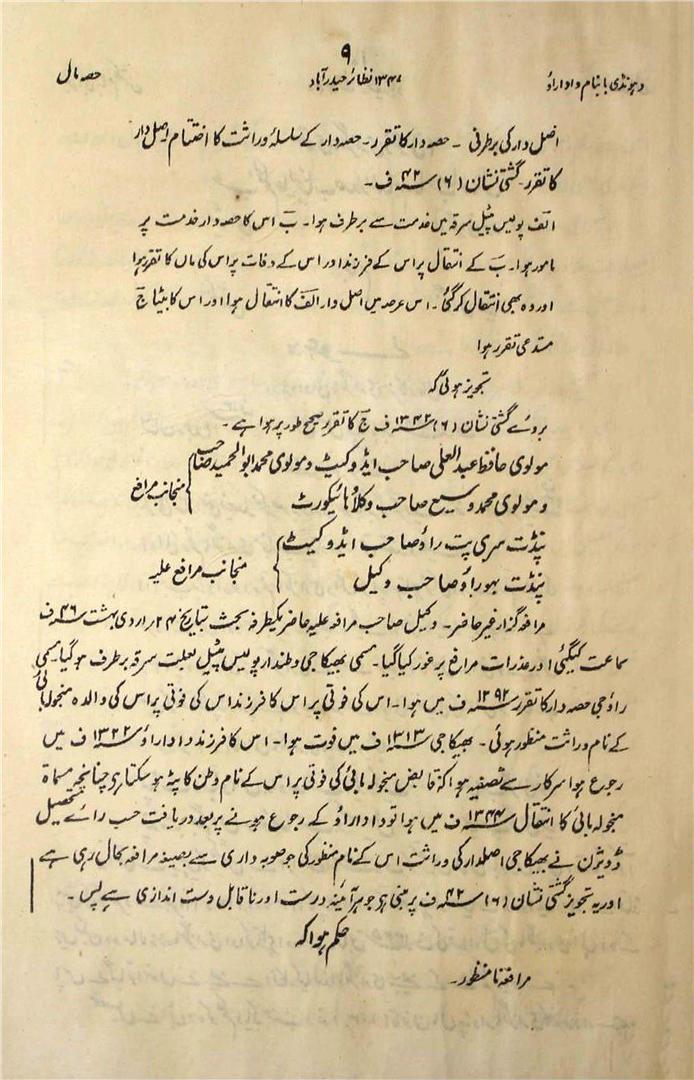 ۹
دہونڈی با بنام دادا راؤ ۱۳۴۷ نظائر حیدرآباد حصہ مال
اصل دار کی برطرفی ۔ حصہ دار کا تقرر ۔ حصہ دار کے سلسلۂ وراثت کا اختتام اصل دار
کا تقرر ۔ گشتی نشان (۶) ۴۲ سنہ ف ۔
الف پولیس پٹیل سرقہ میں خدمت سے برطرف ہوا ۔ ب اس کا حصہ دار خدمت پر
مامور ہوا ۔ ب کے انتقال پر اس کے فرزند اور اس کے وفات پر اس کی ماں کا تقرر ہوا
اور وہ بھی انتقال کر گئی ۔ اس عرصہ میں اصل دار الف کا انتقال ہوا اور اس کا بیٹا ج
مستدعی تقرر ہوا
تجویز ہوئی کہ
بروئے گشتی نشان (۶) ۱۳۴۲ سنہ ف ج کا تقرر صحیح طور پر ہوا ہے ۔
مولوی حافظ عبدالعلی صاحب ایڈوکیٹ و مولوی محمد ابوالحمید صاحب
و مولوی محمد وسیع صاحب وکلاء ہائیکورٹ } منجانب مرافع
پنڈت سری پت راؤ صاحب ایڈوکیٹ
پنڈت بہوراؤ صاحب وکیل } منجانب مرافع علیہ
مرافعہ گزار غیر حاضر ۔ وکیل صاحب مرافعہ علیہ حاضر یکطرفہ بحث بتاریخ ۲۴ ر اردی بہشت ۴۶ سنہ ف
سماعت کیگئی اور عذرات مرافع پر غور کیا گیا ۔ مسمی بھیکاجی وطندار پولیس پٹیل بعلت سرقہ برطرف ہو گیا ۔ مسمی
راؤجی حصہ دار کا تقرر ۱۲۹۲ سنہ ف میں ہوا ۔ اس کی فوتی پر اس کا فرزند اس کی فوتی پر اس کی والدہ منجولہ بائی
کے نام وراثت منظور ہوئی ۔ بھیکاجی ۱۳۱۳ سنہ ف میں فوت ہوا ۔ اس کا فرزند دادا راؤ ۱۳۲۲ سنہ ف میں
رجوع ہوا سرکار سے تصفیہ ہوا کہ قابض منجولہ بائی کی فوتی پر اس کے نام وطن کا پٹہ ہو سکتا ہے چنانچہ مسماۃ
منجولہ بائی کا انتقال ۱۳۴۴ سنہ ف میں ہوا تو دادا راؤ کے رجوع ہونے پر بعد دریافت حسب رائے تحصیل
ڈویژن نے بھیکاجی اصلدار کی وراثت اس کے نام منظور کی جو صوبہ داری سے بصیغہ مرافعہ بحال رہی ہے
اور یہ تجویز گشتی نشان (۶) ۴۲ سنہ ف پر مبنی ہے جو ہر آئینہ درست اور ناقابل دست اندازی ہے پس ۔
حکم ہوا کہ
مرافعہ نا منظور ۔